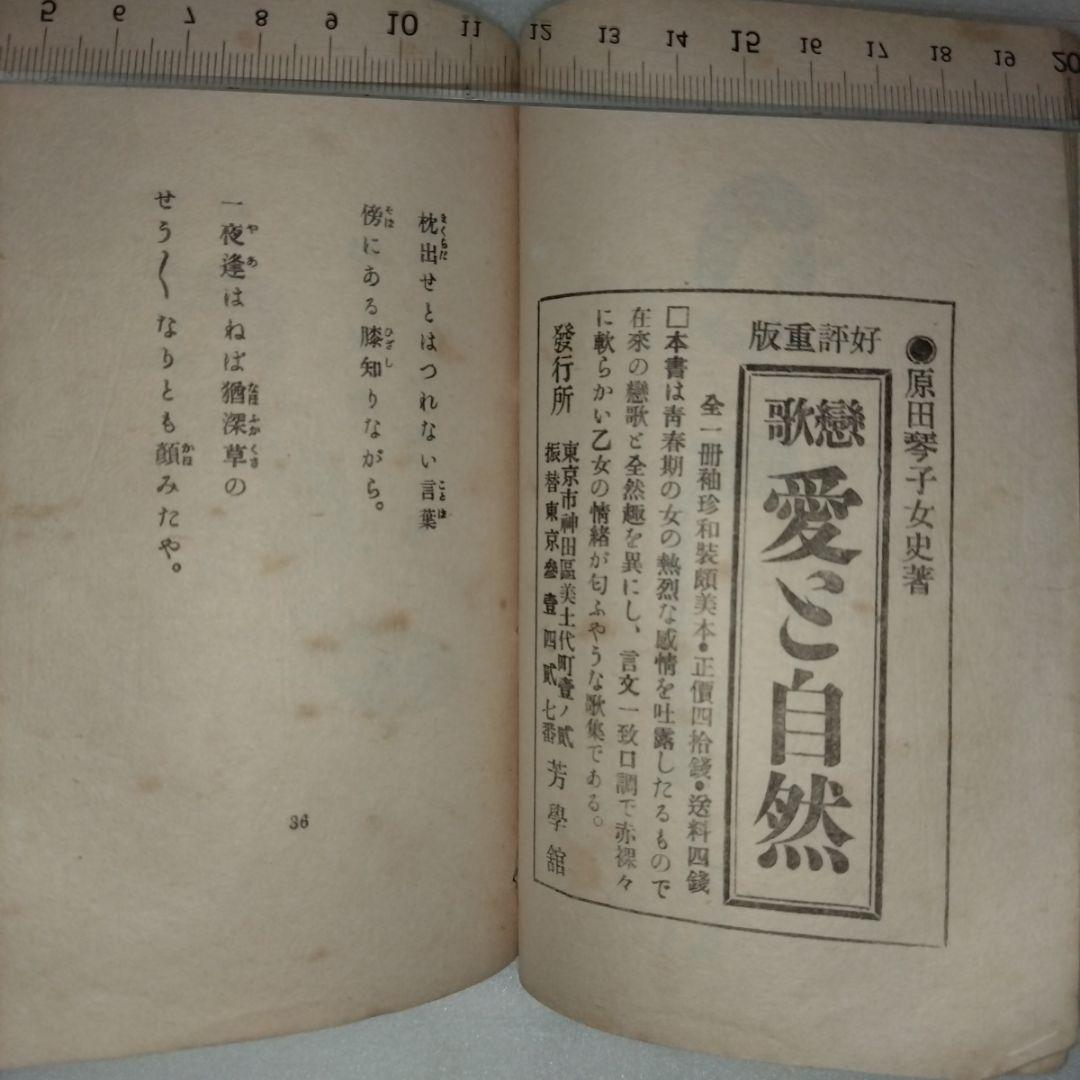 ●原田琴子女史著
好評重版
戀歌 愛と自然
全一册袖珍和裝頗美本・正價四拾錢・送料四錢
□本書は靑春期の女の熱烈な感情を吐露したるもので
在來の戀歌と全然趣を異にし、言文一致口調で赤裸々
に軟らかい乙女の情緖が匂ふやうな歌集である。
發行所 東京市神田區美土代町壹ノ貳
振替東京參壹四貳七番
芳學舘
枕出せとはつれない言葉
傍にある膝知りながら。
一夜逢はねば猶深草の
せう〱なりとも顏みたや。
36
5 6 7 8 9 10 11 12 13 14 15 16 17 18 19 20